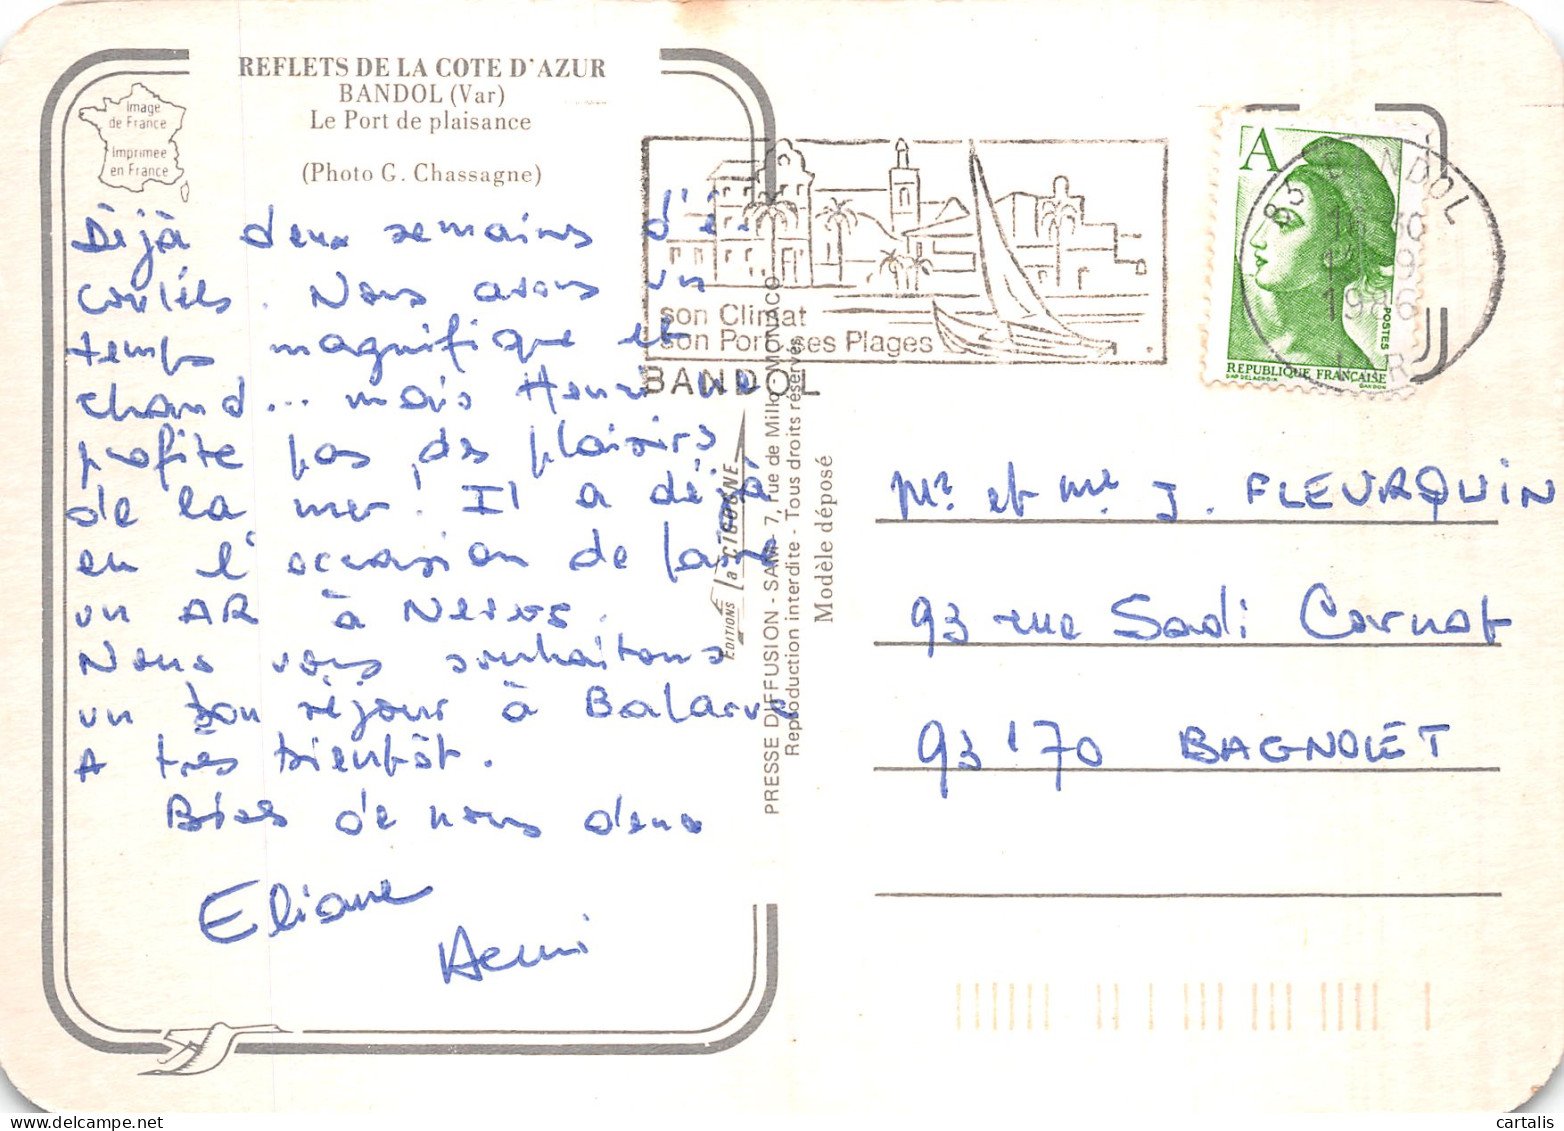 REFLETS DE LA COTE D'AZUR
BANDOL (Var)
Le Port de plaisance
(Photo G. Chassagne)
Image
de France
Imprimée
en France
Déjà deux semaines d'é-
coulées. Nous avons un
temps magnifique et
chaud... mais Henri ne
profite pas des plaisirs
de la mer! Il a déjà
eu l'occasion de faire
un AR à
Nous vous souhaitons
un bon séjour à Balaruc
A très bientôt.
Bises de nous deux
Eliane
Henri
EDITIONS la CIGOGNE
PRESSE DIFFUSION - SAM - 7, rue de Millo MONACO
Reproduction interdite - Tous droits réservés
Modèle déposé
son Climat
son Port ses Plages
BANDOL
A
POSTES
REPUBLIQUE FRANÇAISE
83 BANDOL
1986
VAR
Mr et Me J. FLEURQUIN
93 rue Sadi Carnot
93170 BAGNOLET
cartalis
delcampe.net